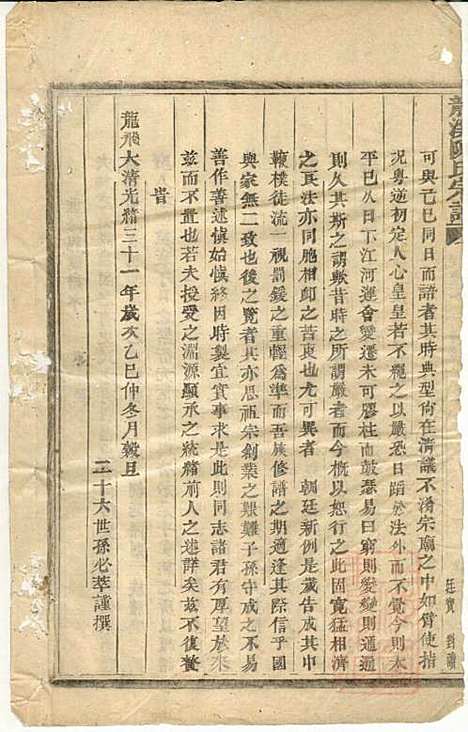 龍溪陳氏宗譜
可與己巳同日而語者其時典型尙在清議不淆宗廟之中如臂使指
況粵逆初定人心皇皇若不繩之以嚴恐日蹈於法外而不覺今則太
平已久日下江河運會變遷未可膠柱而鼓瑟易曰窮則變變則通通
則久其斯之謂歟昔時之所謂嚴者而今概以恕行之此固寬猛相濟
之良法亦同胞相卹之苦衷也尤可異者　朝廷新例是歲告成其中
鞭樸徒流一視罰鍰之重輕爲準而吾族修譜之期適逢其際信乎國
與家無二致也後之覽者其亦思祖宗創業之艱難子孫守成之不易
善作善述慎始慎終因時製宜實事求是此則同志諸君有厚望於來
茲而不置也若夫授受之淵源顯承之統緒前人之述詳矣茲不復贅
旹
龍飛大清光緒三十一年歲次乙巳仲冬月穀旦
二十六世孫必萃謹撰